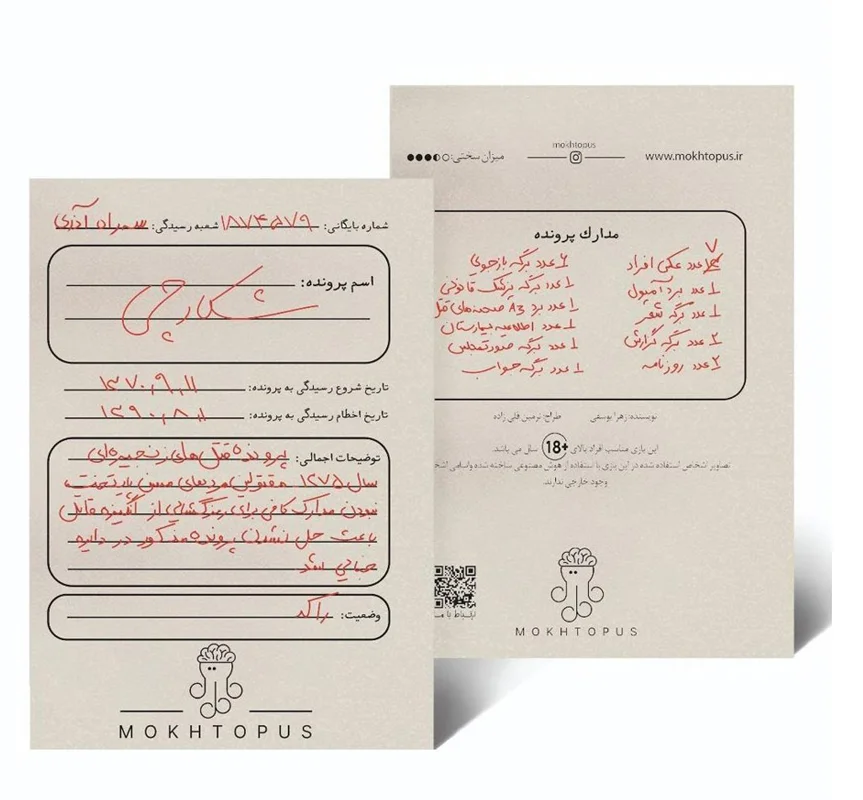 شماره بایگانی: ۱۸۷۴۵۷۹ شعبه رسیدگی:
اسم پرونده:
شکارچی
تاریخ شروع رسیدگی به پرونده: ۱۳۷۰,۹,۱۱
تاریخ اخطام رسیدگی به پرونده: ۱۳۹۰,۸,۱۱
توضیحات اجمالی: پرونده قتل های زنجیره‌ای
سال ۱۲۷۵ مقتولین مردهای مسن پایتخت
نبودن مدارک کافی برای رمزگشایی از انگیزه قاتل
باعث حل نشدن پرونده مذکور در دایره
جنایی شد
وضعیت: راکد
MOKHTOPUS
www.mokhtopus.ir
mokhtopus
میزان سختی:
مدارک پرونده
۷ عدد عکس افراد
۱ عدد برد آمپول
۱ عدد برگه
۲ عدد برگه گزارش
۲ عدد روزنامه
۶ عدد برگه بازجویی
۱ عدد برگه پزشک قانونی
۱ عدد برد A3 صحنه‌های قتل
۱ عدد اطلاعیه بیمارستان
۱ عدد برگه صورتجلس
۱ عدد برگه جواب
نویسنده: زهرا یوسفی طراح: نرمین قلی زاده
این بازی مناسب افراد بالای 18+ سال می باشد.
تصاویر اشخاص استفاده شده در این بازی با استفاده از هوش مصنوعی ساخته شده و اسامی
وجود خارجی ندارند.
ارتباط با
MOKHTOPUS